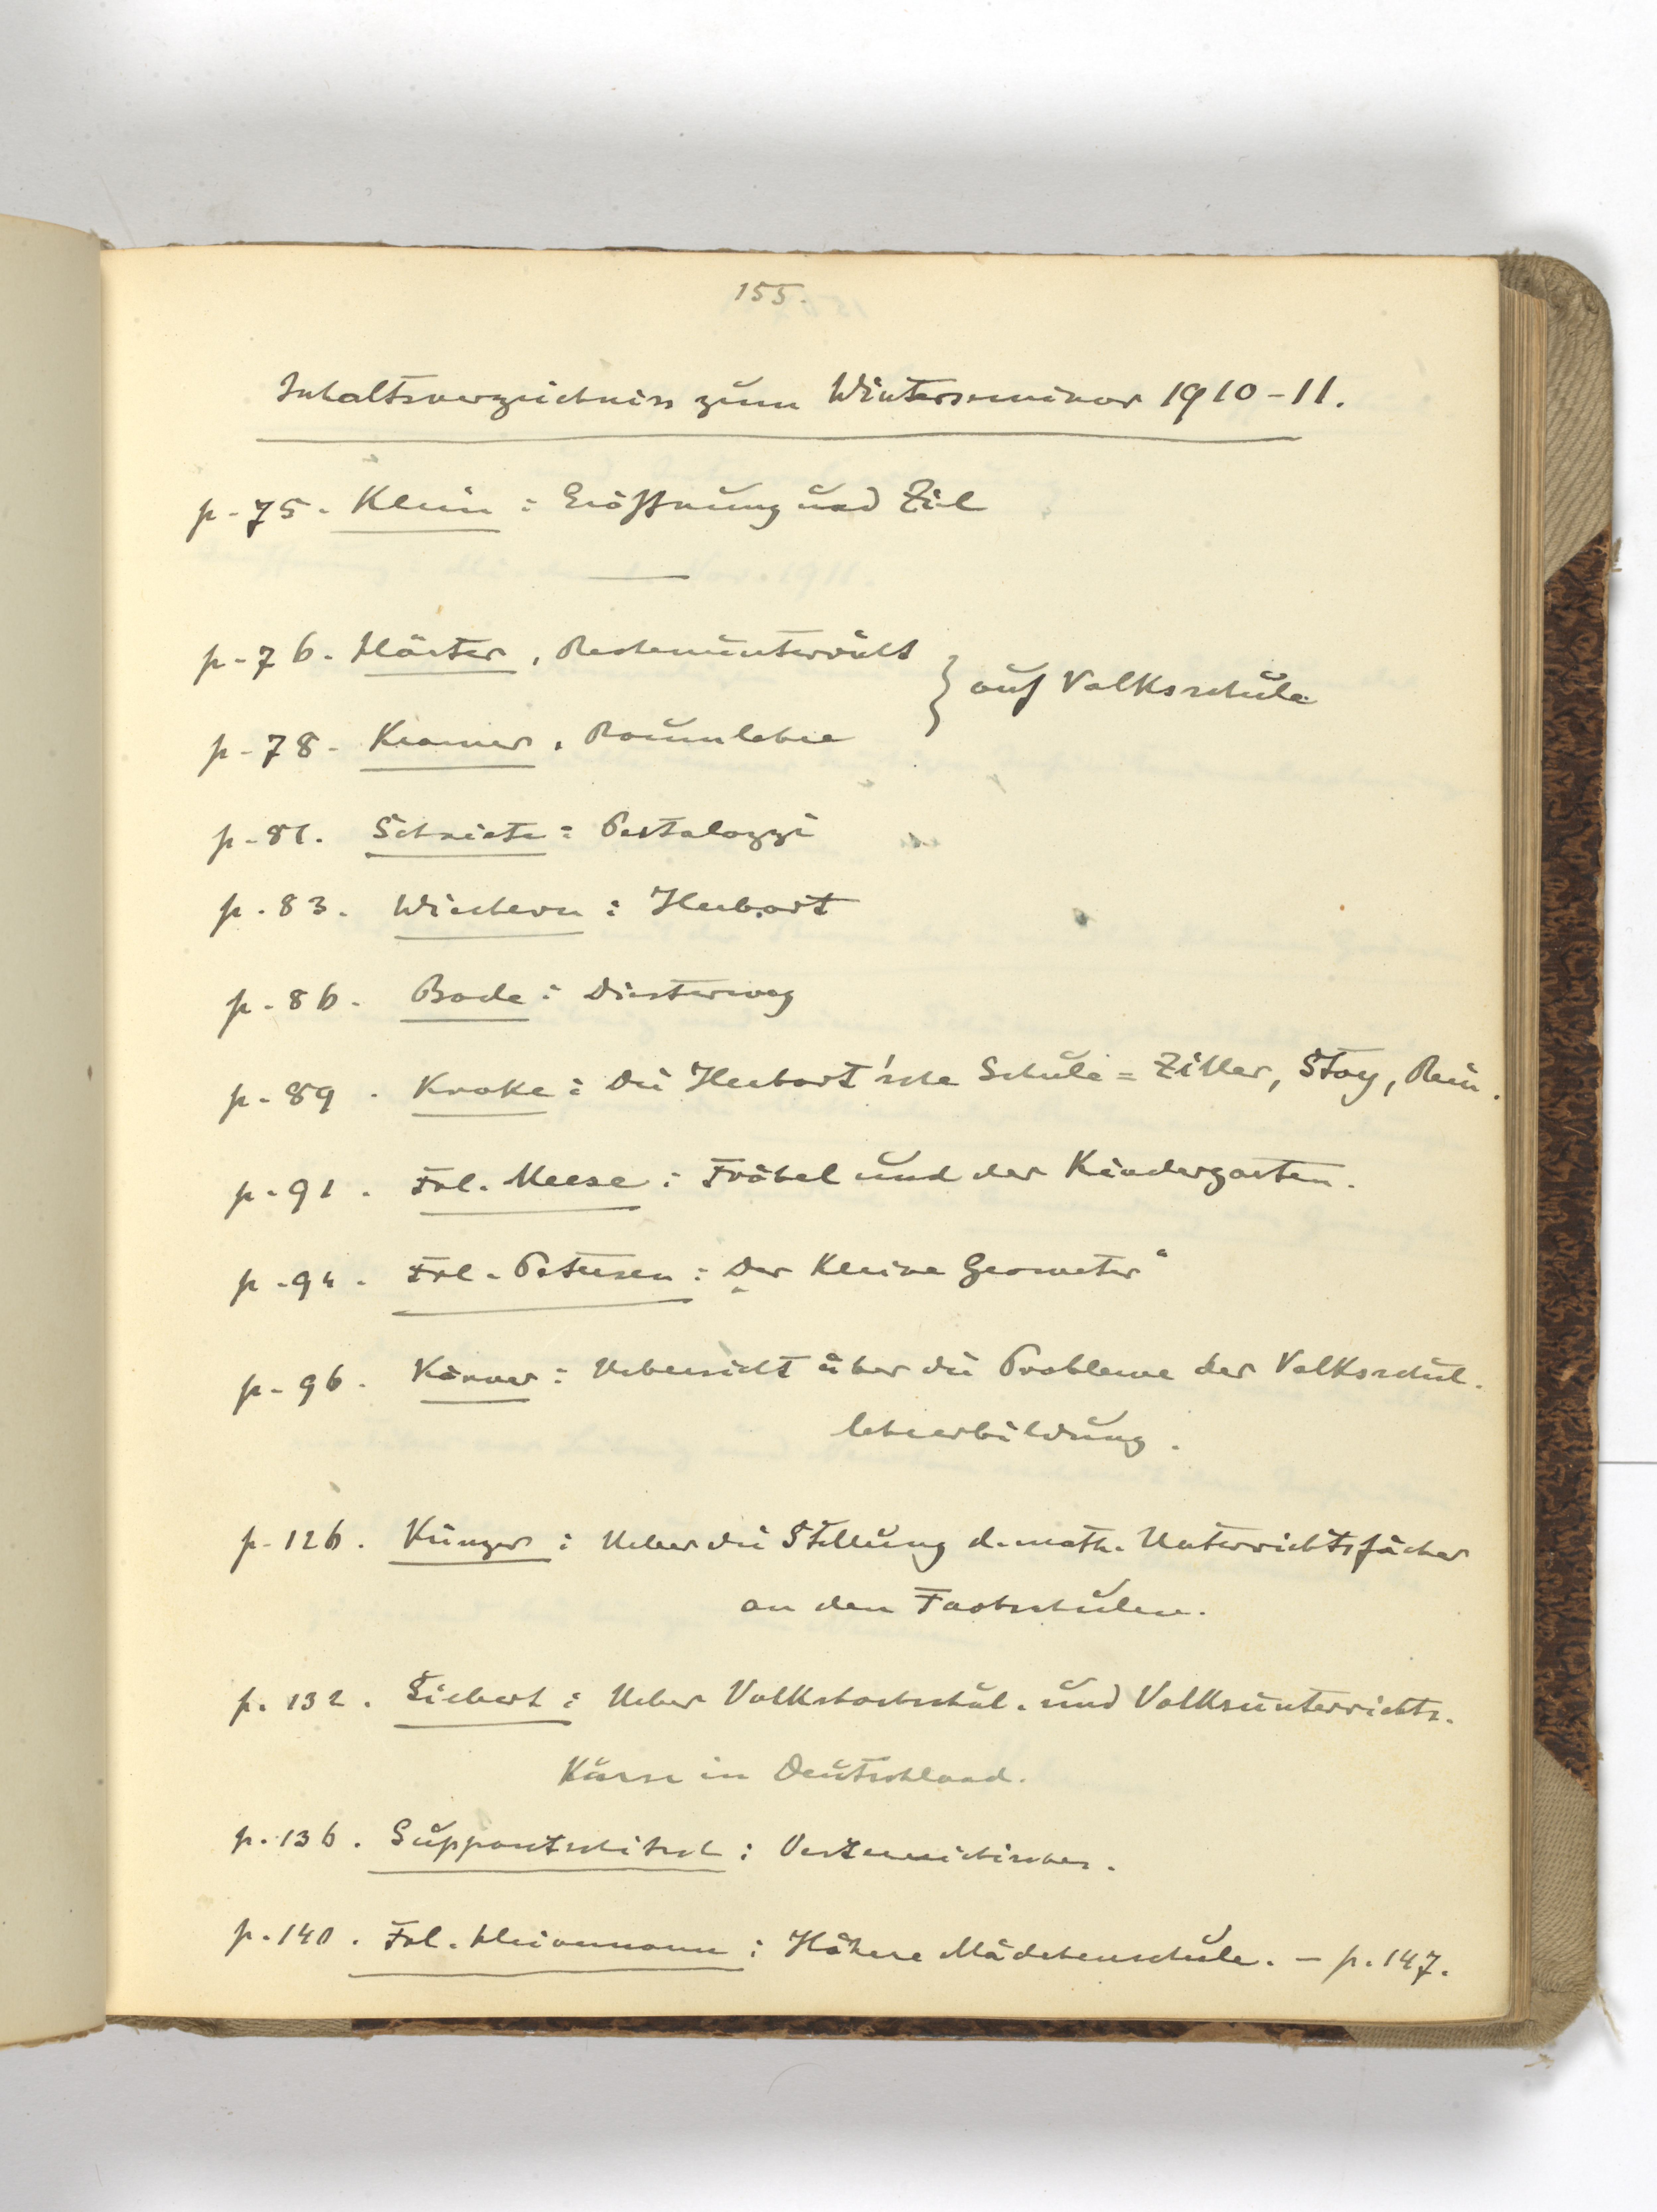 155.
Inhaltsverzeichniss zum Winterseminar 1910-11.
p. 75. Klein: Eröffnung und Ziel
p. 76. Härter, Rechenunterricht
} auf Volksschule
p. 78. Kramer, Raumlehre
p. 81. Schwiete: Pestalozzi
p. 83. Wichern: Herbart
p. 86. Bode: Diesterweg
p. 89. Kroke: Die Herbart'sche Schule = Ziller, Stoy, Rein.
p. 91. Frl. Meese: Fröbel und der Kindergarten.
p. 94. Frl. Petersen: „Der kleine Geometer“
p. 96. Körner: Uebersicht über die Probleme der Volksschul.
lehrerbildung.
p. 126. Künzer: Ueber die Stellung d. math. Unterrichtsfächer
an den Fachschulen.
p. 132. Siebert: Ueber Volkshochschul. und Volksunterrichts.
Kurse in Deutschland.
p. 136. Suppantschitsch: Oesterreichisches.
p. 140. Frl. Heinemann: Höhere Mädchenschule. – p. 147.